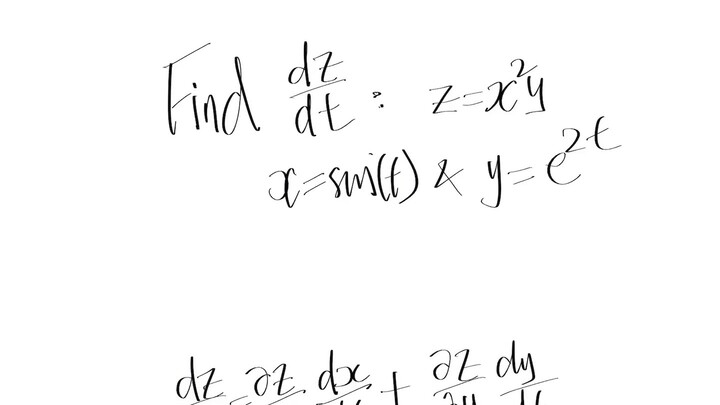 Find dz/dt: z=x²y
x=sin(t) & y=e^2t
dz = ∂z dx + ∂z dy